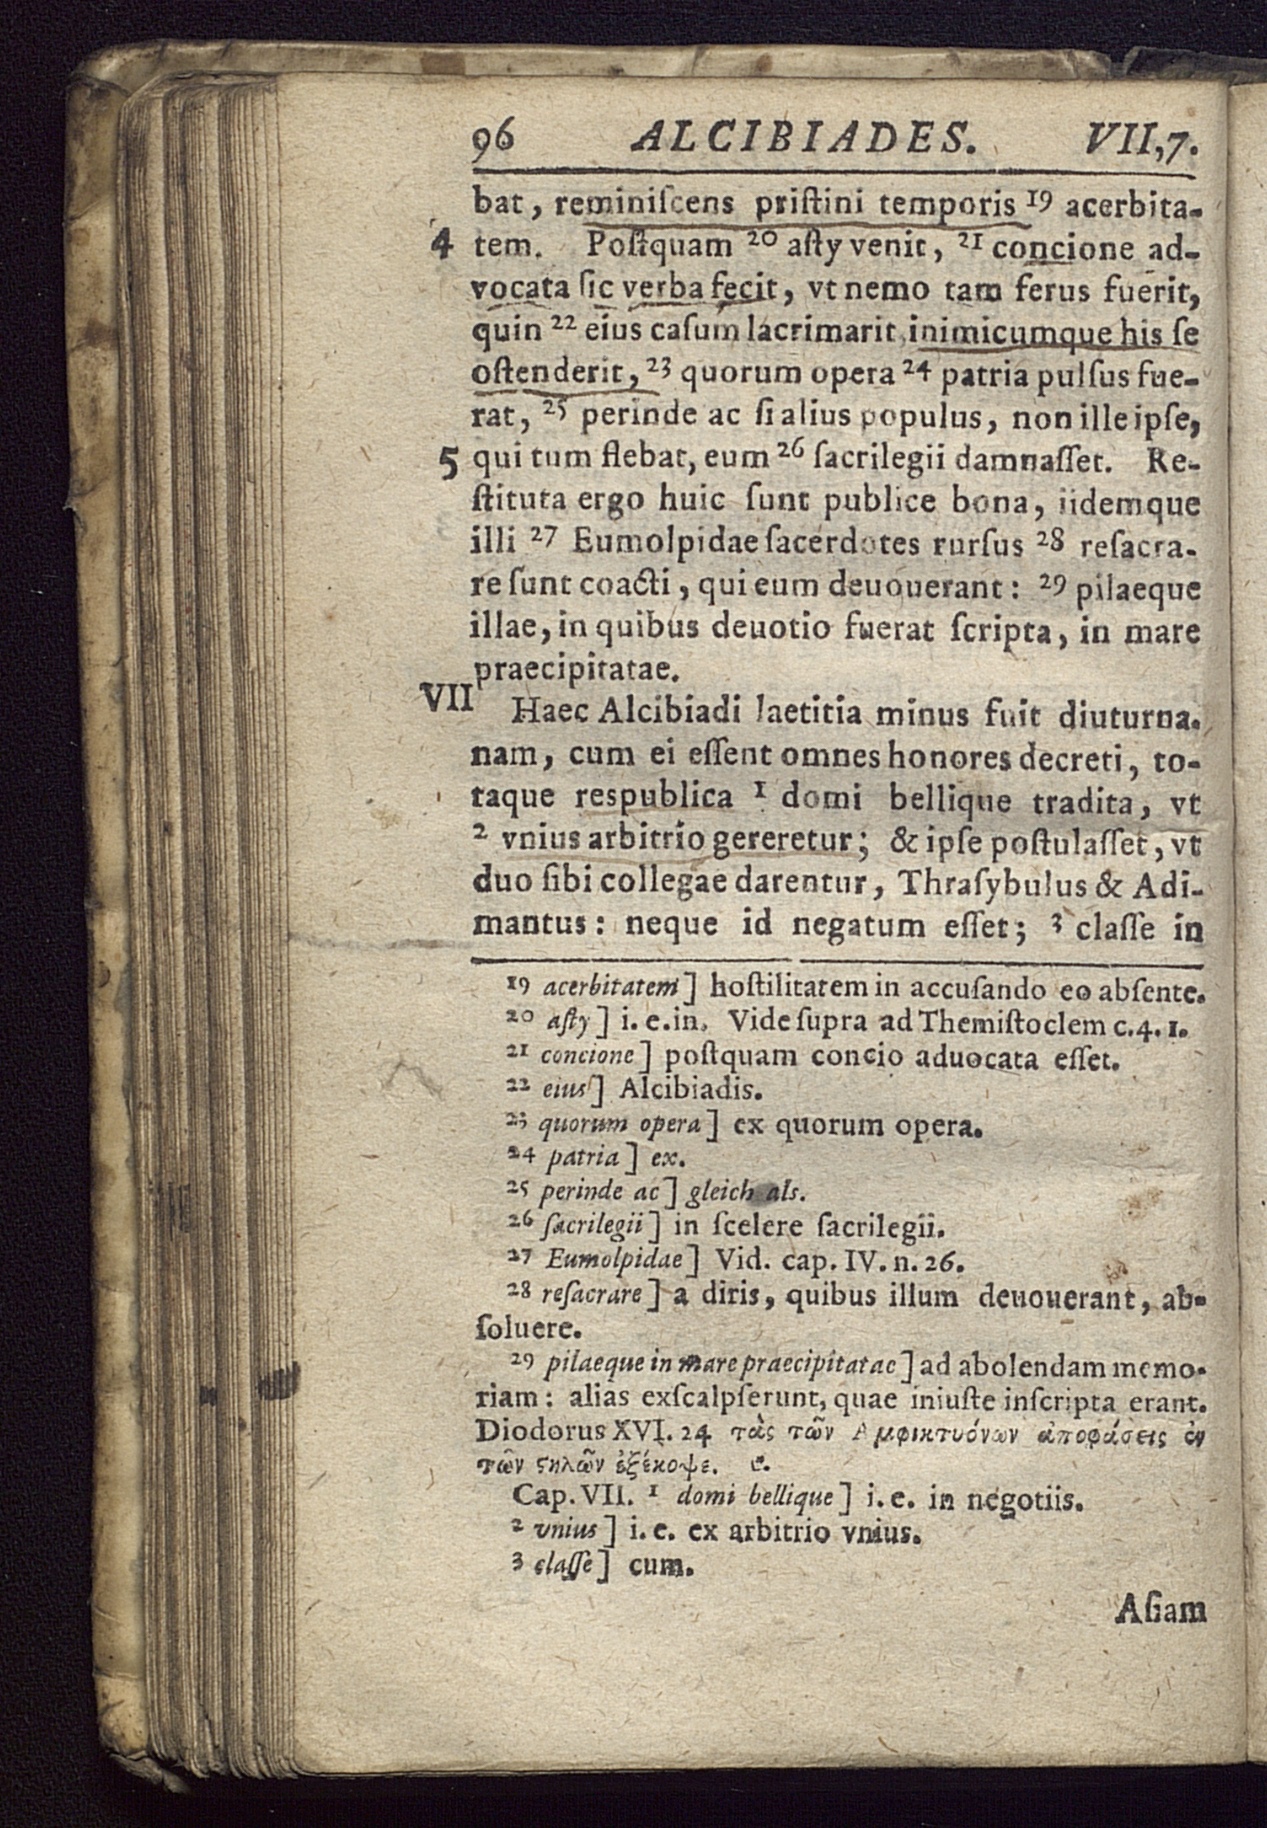 96 ALCIBIADES. VII,7.
bat, reminiſcens priſtini temporis 19 acerbita-
4 tem. Poſtquam 20 aſty venit, 21 concione ad-
vocata ſic verba fecit, vt nemo tam ferus fuerit,
quin 22 eius caſum lacrimarit inimicumque his ſe
oſtenderit, 23 quorum opera 24 patria pulſus fue-
rat, 25 perinde ac ſi alius populus, non ille ipſe,
5 qui tum flebat, eum 26 ſacrilegii damnaſſet. Re-
ſtituta ergo huic ſunt publice bona, iidemque
illi 27 Eumolpidae ſacerdotes rurſus 28 reſacra-
re ſunt coacti, qui eum deuouerant: 29 pilaeque
illae, in quibus deuotio fuerat ſcripta, in mare
praecipitatae.
VII Haec Alcibiadi laetitia minus fuit diuturna.
nam, cum ei eſſent omnes honores decreti, to-
taque respublica 1 domi bellique tradita, vt
2 vnius arbitrio gereretur; & ipſe poſtulaſſet, vt
duo ſibi collegae darentur, Thraſybulus & Adi-
mantus: neque id negatum eſſet; 3 claſſe in
19 acerbitatem] hoſtilitatem in accuſando eo abſente.
20 aſty] i. e. in. Vide ſupra ad Themiſtoclem c. 4. 1.
21 concione] poſtquam concio aduocata eſſet.
22 eius] Alcibiadis.
23 quorum opera] ex quorum opera.
24 patria] ex.
25 perinde ac] gleich als.
26 ſacrilegii] in ſcelere ſacrilegii.
27 Eumolpidae] Vid. cap. IV. n. 26.
28 reſacrare] a diris, quibus illum deuouerant, ab-
ſoluere.
29 pilaeque in mare praecipitatae] ad abolendam memo-
riam: alias exſcalpſerunt, quae iniuſte inſcripta erant.
Diodorus XVI. 24 τὰς τῶν Αμφικτυόνων ἀποφάσεις ἐν
τῶν ϛηλῶν ἐξέκοψε. e.
Cap. VII. 1 domi bellique] i. e. in negotiis.
2 vnius] i. e. ex arbitrio vnius.
3 claſſe] cum.
Aſiam